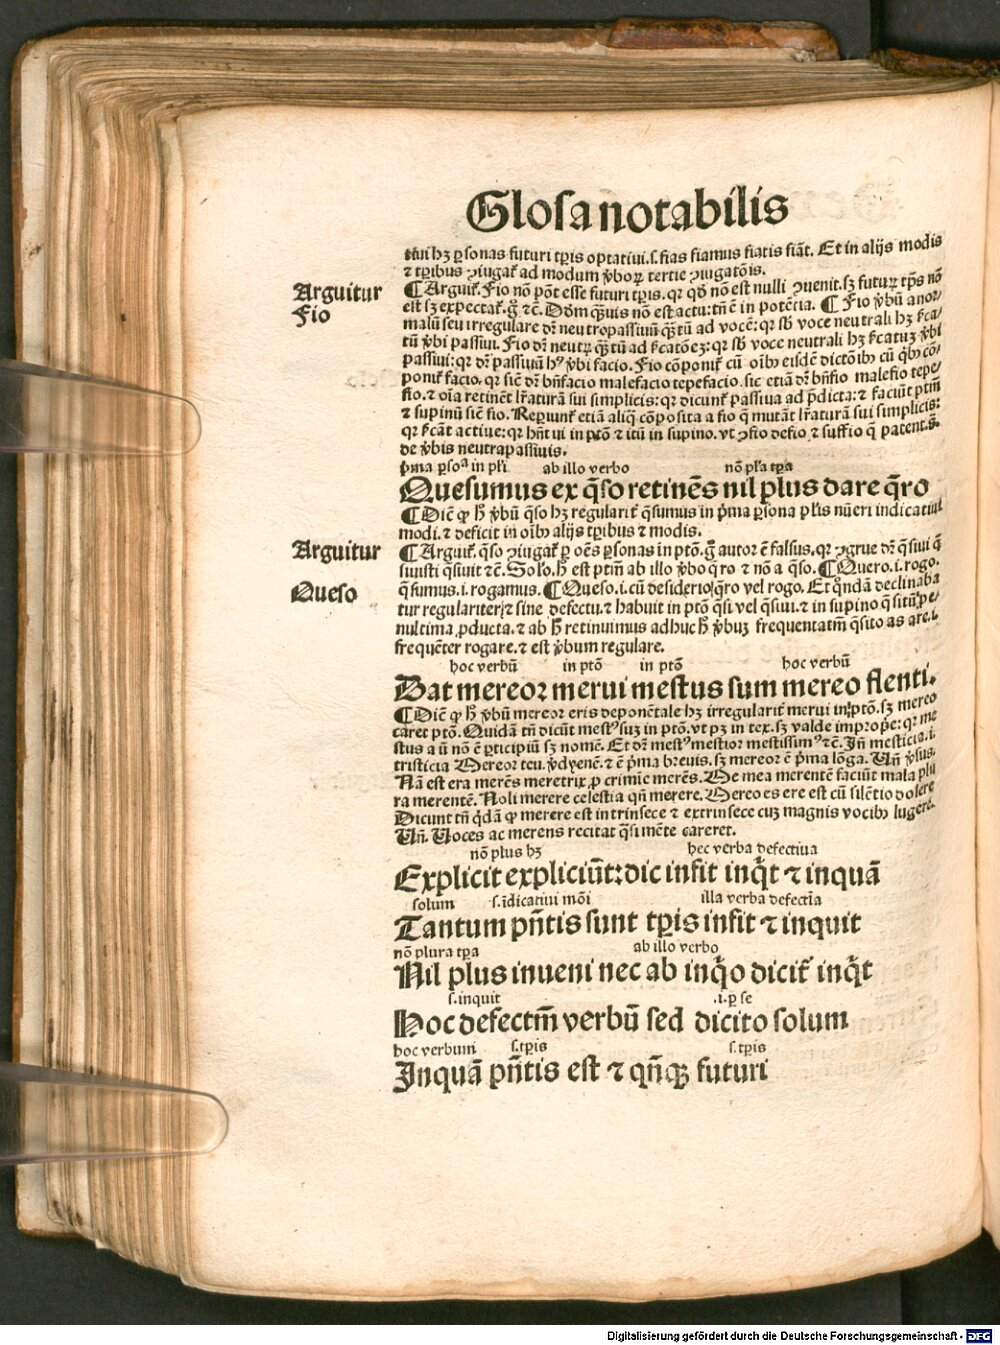 Glosa notabilis
tiui hꝫ ꝑsonas futuri tꝑis optatiui.s.fias fiamus fiatis fiāt. Et in alijs modis
⁊ tꝑibus ꝯiugat᷑ ad modum v̓boꝝ tertie ꝯiugatōis.
Arguitur
¶ Arguit᷑. Fio nō pōt esse futuri tꝑis. qꝛ qđ nō est nulli ꝯuenit. sꝫ futuꝝ tp̄s nō
Fio
est sꝫ expectat᷑. g̊ ⁊c̄. Dōm q̄uis nō est actu: tn̄ ē in potētia. ¶ Fio v̓bū anor/
malū seu irregulare dr̄ neutropassiuū q̄ꝫtū ad vocē: qꝛ sb̓ voce neutrali hꝫ
tū v̓bi passiui. Fio dr̄ neutꝝ
passiui: qꝛ dr̄ passiuū hꝰ v̓bi facio. Fio cōponit᷑ cū oībꝰ eisdē dictōibꝰ cū q̇bꝰ cō/
ponit᷑ facio. qꝛ sic̄ dr̄ bn̄facio malefacio tepefacio. sic etiā dr̄ bn̄fio malefio tepe/
fio. ⁊ oīa retinēt lr̄aturā sui simplicis: qꝛ dicunt᷑ passiua ad p̄dicta: ⁊ faciūt ptm̄
⁊ supinū sic̄ fio. Reꝑiunt᷑ etiā aliq̄ cōposita a fio q̄ mutāt lr̄aturā sui simplicis:
qꝛ actiue: qꝛ hn̄t ui in ptō ⁊ itū in supino. vt ꝯfio defio ⁊ suffio q̄ patent.
de v̓bis neutrapassiuis.
p̓ma ꝑsoᵃ in pl̓i ab illo verbo nō pl̓a tꝑa
Quesumus ex q̄so retinēs nil plus dare q̄ro
¶ Dic̄ ꝙ h̄ v̓bū q̄so hꝫ regularit᷑ q̄sumus in p̓ma ꝑsona pl̓is nūeri indicatiui
modi. ⁊ deficit in oībꝰ alijs tꝑibus ⁊ modis.
Arguitur
¶ Arguit᷑. q̄so ꝯiugat᷑ ꝑ oēs ꝑsonas in ptō. g̊ autor ē falsus. qꝛ ꝯgrue dr̄ q̄siui q̄
siuisti q̄siuit ⁊c̄. Solo. h̄ est ptm̄ ab illo v̓bo q̄ro ⁊ nō a q̄so. ¶ Quero.i.rogo.
Queso
q̄sumus.i.rogamus. ¶ Queso.i.cū desiderio q̄ro vel rogo. Et qn̄dā declinaba
tur regulariter ⁊ sine defectu. ⁊ habuit in ptō q̄si vel q̄siui. ⁊ in supino q̄sitū pe/
nultima ꝓducta. ⁊ ab h̄ retinuimus adhuc h̄ v̓buꝫ frequentatm̄ q̄sito as are.i.
frequēter rogare. ⁊ est v̓bum regulare.
hoc verbū in ptō in ptō hoc verbū
Dat mereoꝛ merui mestus sum mereo flenti.
¶ Dic̄ ꝙ h̄ v̓bū mereor eris deponētale hꝫ irregularit᷑ merui in ptō. sꝫ mereo
caret ptō. Quidā tn̄ dicūt mestꝰ suꝫ in ptō. vt pꝫ in tex. sꝫ valde improp̄e: qꝛ me
stus a ū nō ē ꝑticipiū sꝫ nomē. Et dr̄ mestꝰ mestior mestissimꝰ ⁊c̄. Jn̄ mesticia.i.
tristicia Mereor ē p̓ma breuis. sꝫ mereor ē p̓ma lōga. Vn̄ v̓sus.
Nā est era merēs meretrix ꝓ crimīe merēs. Me mea merentē faciūt mala plu
ra merentē. Noli merere celestia qn̄ merere. Mereo es ere est cū silētio dolere
Dicunt tn̄ q̇dā ꝙ merere est intrinsece ⁊ extrinsece cuꝫ magnis vocibꝰ lugere.
Vn̄. Uoces ac merens recitat q̄si mēte careret.
nō plus hꝫ hec verba defectiua
Explicit expliciūt: dic infit inq̇t ⁊ inquā
solum s.īdicatiui mōi illa verba defectīa
Tantum pn̄tis sunt tꝑis infit ⁊ inquit
nō plura tꝑa ab illo verbo
Nil plus inueni nec ab inq̇o dicit᷑ inq̇t
s.inquit .i.ꝑ se
Hoc defectm̄ verbū sed dicito solum
hoc verbum s.tꝑis s.tꝑis
Jnquā pn̄tis est ⁊ qn̄qꝫ futuri
Digitalisierung gefördert durch die Deutsche Forschungsgemeinschaft - DFG